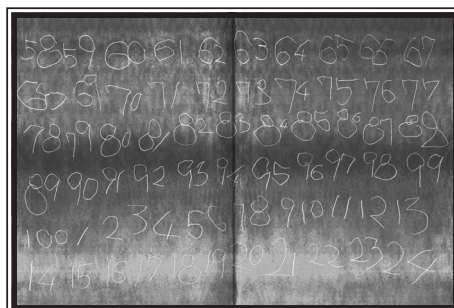 58 59 60 61 62 63 64 65 66 67
60 61 70 71 72 73 74 75 76 77
78 79 80 81 82 83 84 85 86 87 88
89 90 91 92 93 94 95 96 97 98 99
100 1 2 3 4 5 6 7 8 9 10 11 12 13
14 15 16 17 18 19 20 21 22 23 24